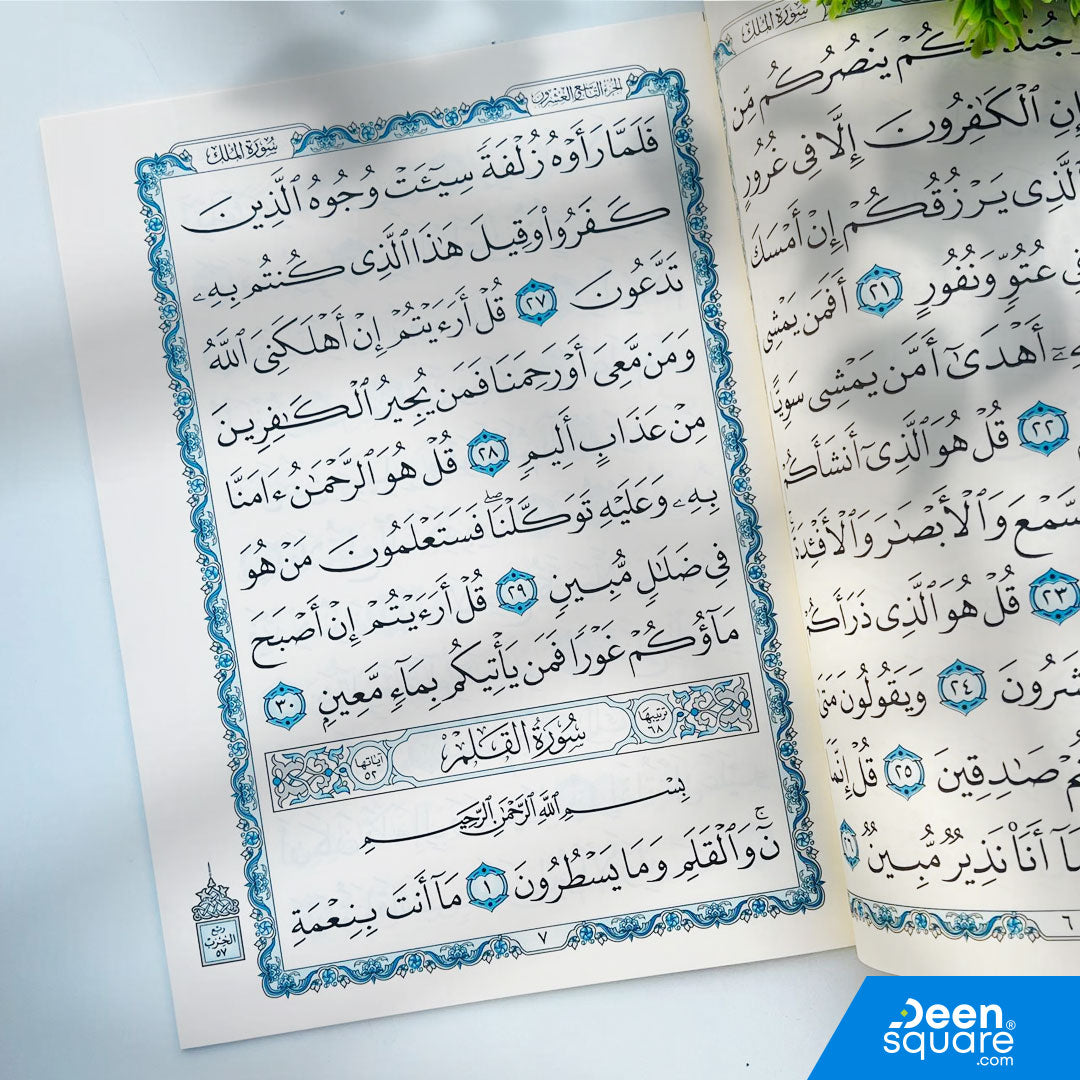 سُورَةُ المُلْكِ
جُندٌ لَّكُمْ يَنصُرُكُم مِّن
إِنِ ٱلْكَٰفِرُونَ إِلَّا فِى غُرُورٍ
ٱلَّذِى يَرْزُقُكُمْ إِنْ أَمْسَكَ
فِى عُتُوٍّ وَنُفُورٍ ٢١ أَفَمَن يَمْشِى
أَهْدَىٰٓ أَمَّن يَمْشِى سَوِيًّا
٢٢ قُلْ هُوَ ٱلَّذِىٓ أَنشَأَكُمْ
ٱلسَّمْعَ وَٱلْأَبْصَٰرَ وَٱلْأَفْـِٔدَةَ
٢٣ قُلْ هُوَ ٱلَّذِى ذَرَأَكُمْ
تُحْشَرُونَ ٢٤ وَيَقُولُونَ مَتَىٰ
صَٰدِقِينَ ٢٥ قُلْ إِنَّمَا
أَنَا۠ نَذِيرٌ مُّبِينٌ ٢٦
٦
الجزء التاسع والعشرون
سُورَةُ المُلْكِ
فَلَمَّا رَأَوْهُ زُلْفَةً سِيٓـَٔتْ وُجُوهُ ٱلَّذِينَ
كَفَرُوا۟ وَقِيلَ هَٰذَا ٱلَّذِى كُنتُم بِهِۦ
تَدَّعُونَ ٢٧ قُلْ أَرَءَيْتُمْ إِنْ أَهْلَكَنِىَ ٱللَّهُ
وَمَن مَّعِىَ أَوْ رَحِمَنَا فَمَن يُجِيرُ ٱلْكَٰفِرِينَ
مِنْ عَذَابٍ أَلِيمٍ ٢٨ قُلْ هُوَ ٱلرَّحْمَٰنُ ءَامَنَّا
بِهِۦ وَعَلَيْهِ تَوَكَّلْنَا ۖ فَسَتَعْلَمُونَ مَنْ هُوَ
فِى ضَلَٰلٍ مُّبِينٍ ٢٩ قُلْ أَرَءَيْتُمْ إِنْ أَصْبَحَ
مَآؤُكُمْ غَوْرًا فَمَن يَأْتِيكُم بِمَآءٍ مَّعِينٍۭ ٣٠
ترتيبها ٦٨ سُورَةُ القَلَمِ آياتها ٥٢
بِسْمِ ٱللَّهِ ٱلرَّحْمَٰنِ ٱلرَّحِيمِ
نٓ ۚ وَٱلْقَلَمِ وَمَا يَسْطُرُونَ ١ مَآ أَنتَ بِنِعْمَةِ
ربع
الحزب
٥٧
٧
Deen®
square
.com